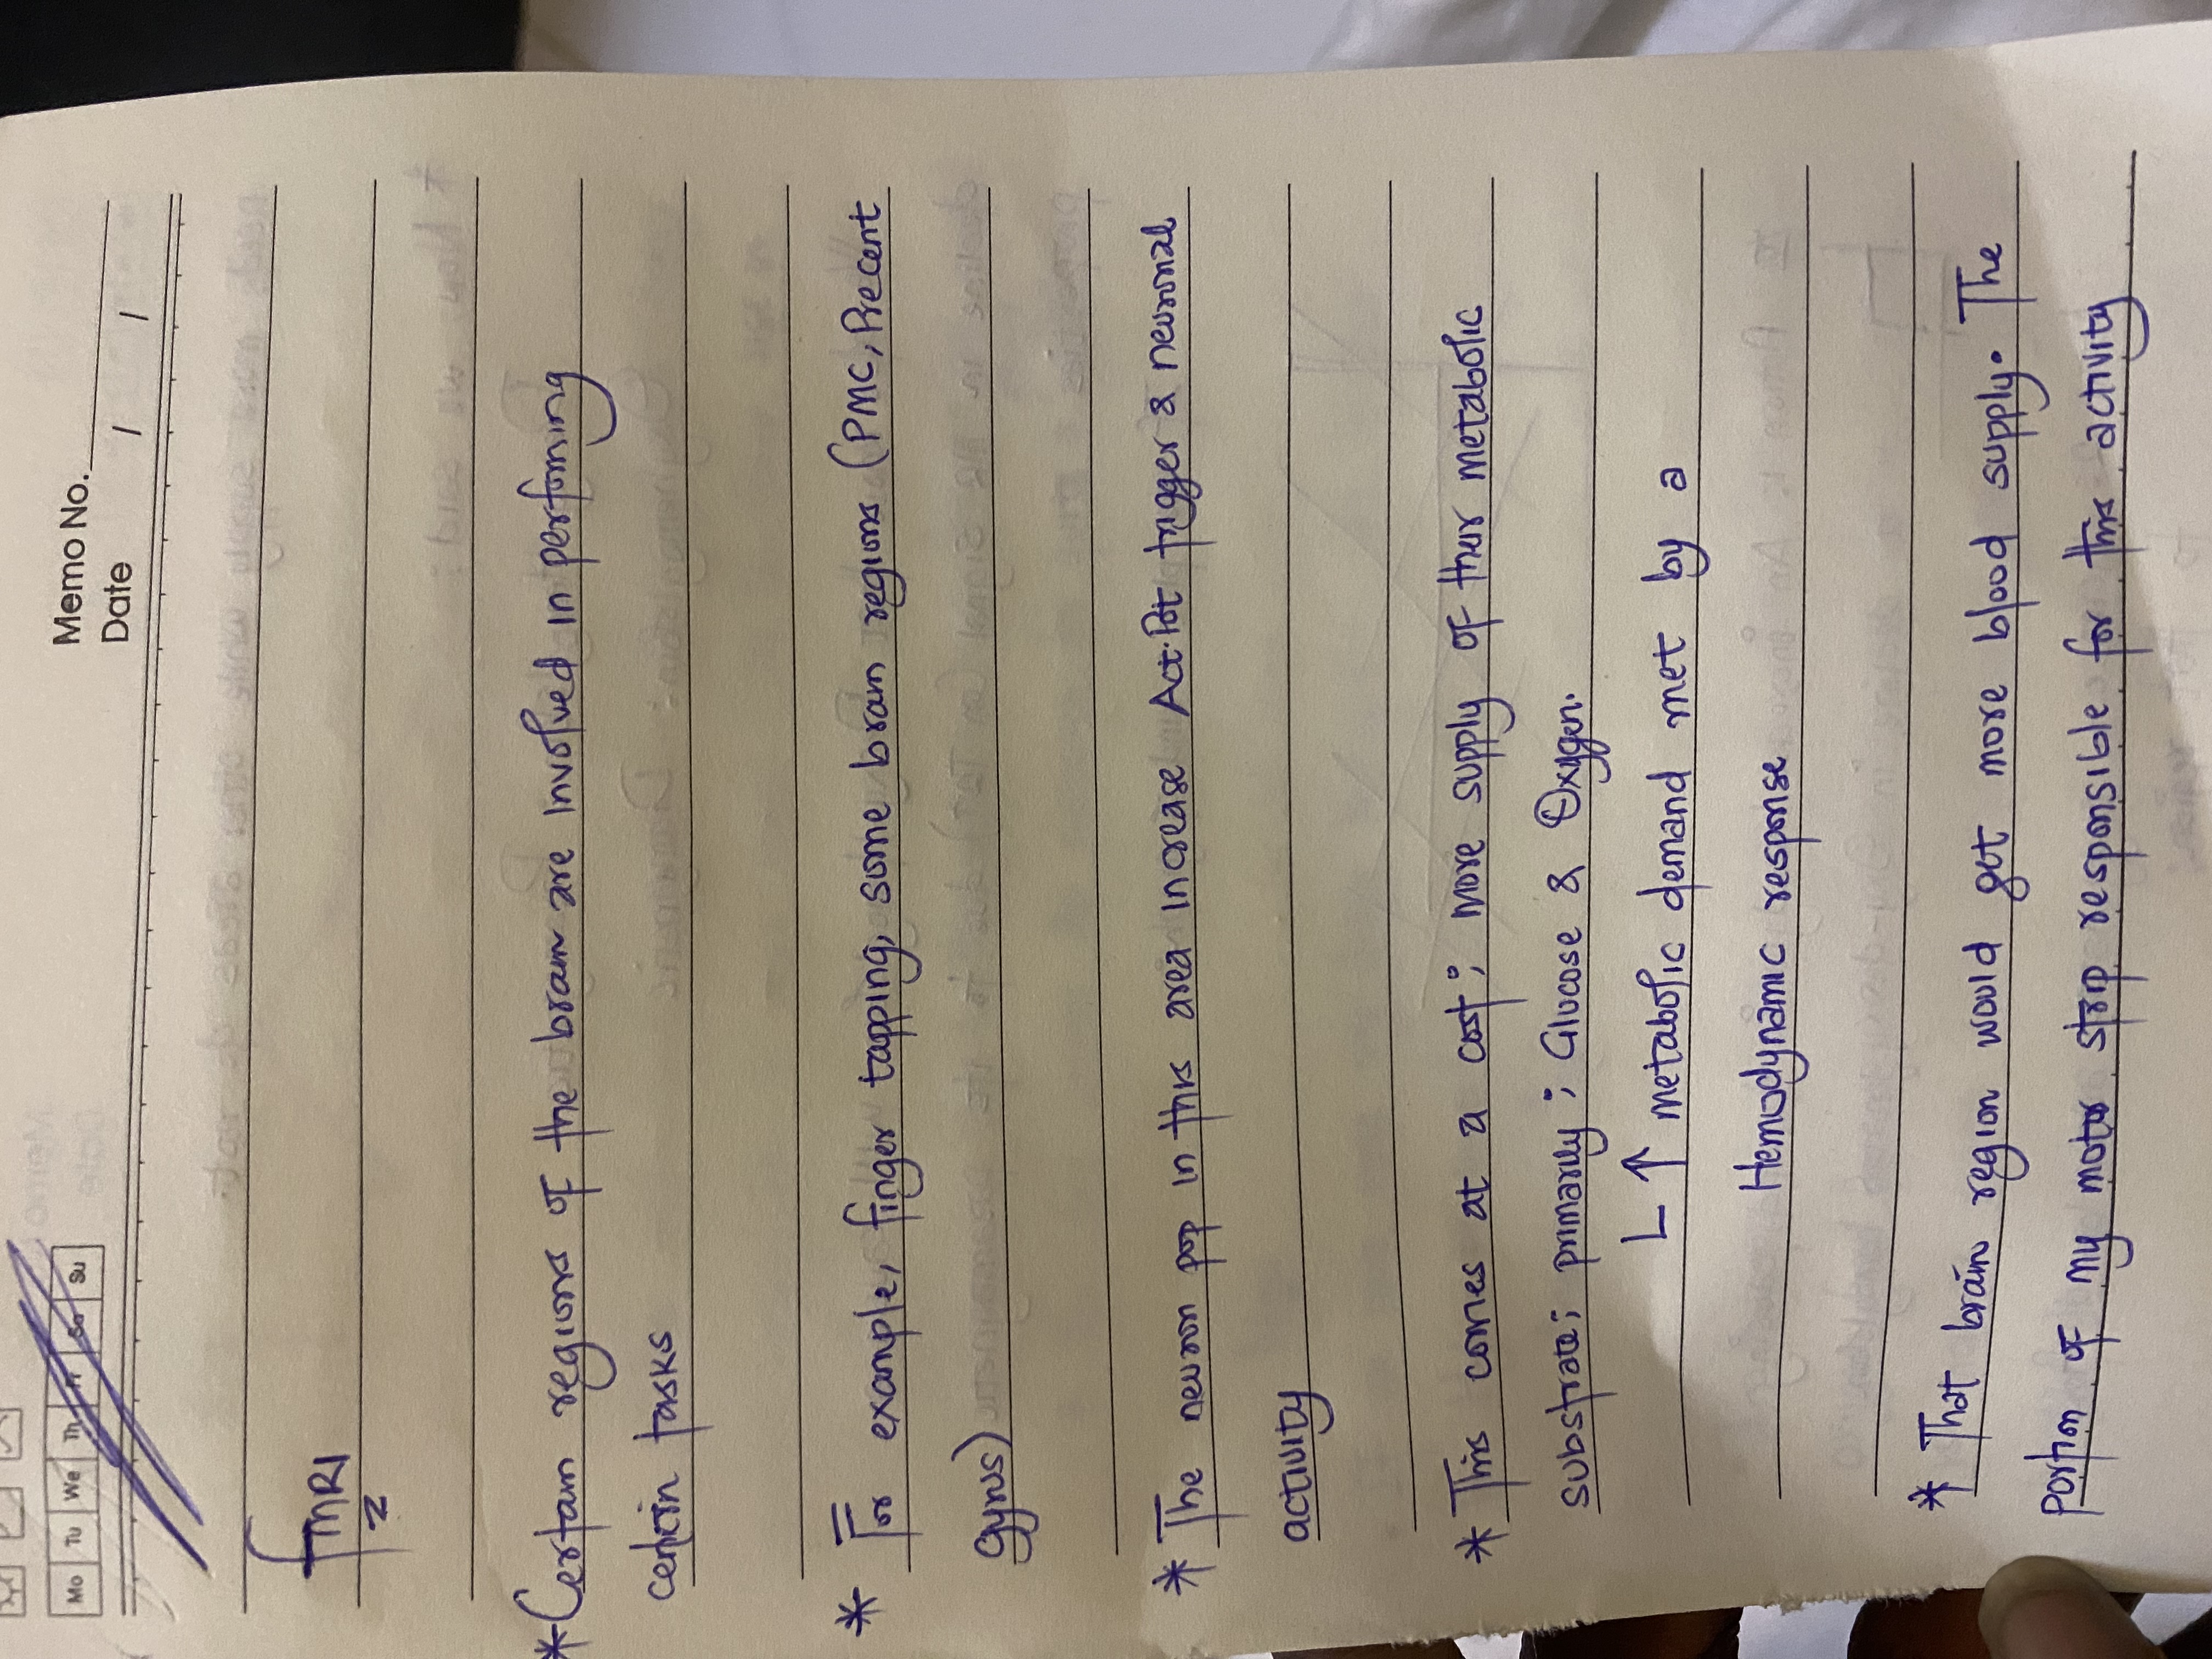 Memo No.
Date / /
Mo Tu We Th Fr Sa Su
fMRI
* Certain regions of the brain are involved in performing
certain tasks
* For example, finger tapping, some brain regions (PMC, Precent
gyrus)
* The neuron pop in this area increase Act. Pot trigger & neuronal
activity
* This comes at a cost; more supply of their metabolic
substrate; primarily; Glucose & Oxygen.
↳ ↑ metabolic demand met by a
Hemodynamic response
* That brain region would get more blood supply. The
portion of my motor strip responsible for this activity